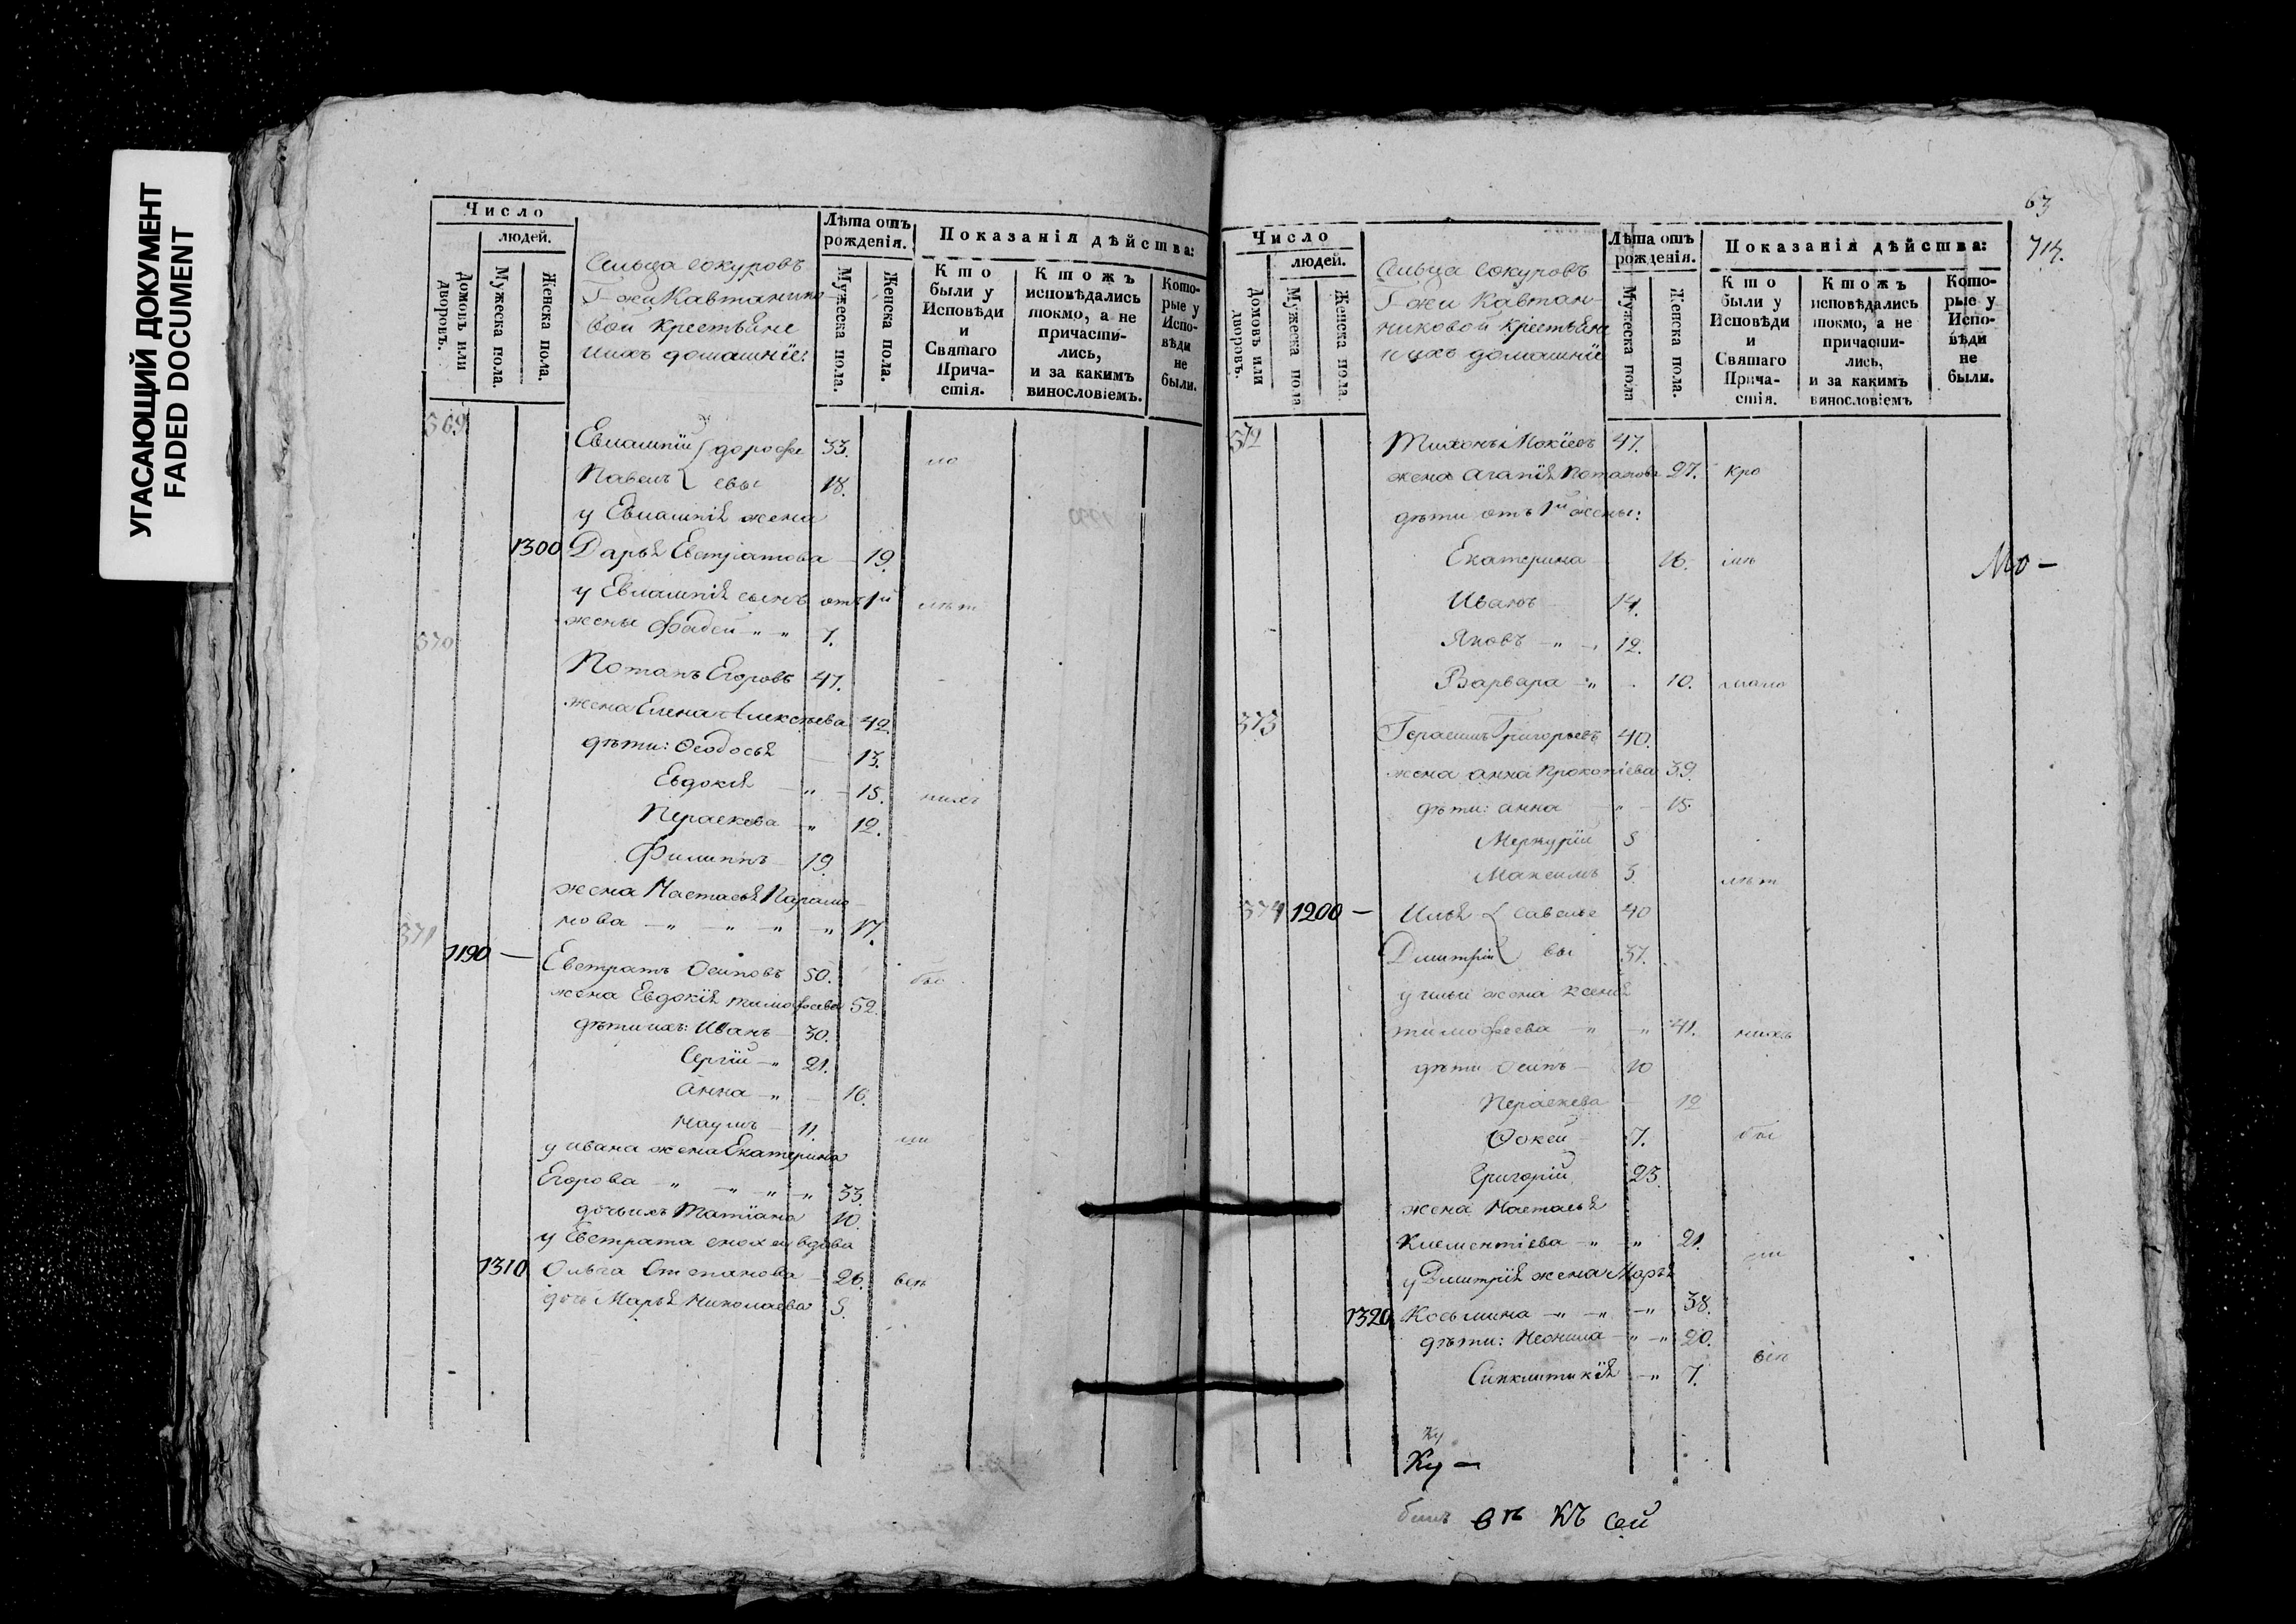 УГАСАЮЩИЙ ДОКУМЕНТ
FADED DOCUMENT
Число
людей.
Домовъ или дворовъ.
Мужеска пола.
Женска пола.
Сельца Сокуровъ
Г-жи Кавтанино-
вой крестьяне
и ихъ домашнїе:
Лѣта отъ
рожденія.
Мужеска пола.
Женска пола.
Показанія дѣйства:
Кто
были у
Исповѣди
и
Святаго
Прича-
стія.
Ктожъ
исповѣдались
токмо, а не
причасти-
лись,
и за какимъ
винословіемъ.
Кото-
рые у
Испо-
вѣди
не
были.
369
Евлампїй дорофе 33.
Павелъ евы 18.
у Евлампїя жена
1300 Дарья Евстратова - 19.
у Евлампїя сынъ отъ 1й
жены Фадей 7.
370
Потапъ Егоровъ 47.
жена Елена Алексѣева 42.
дѣти: Феодосья 13.
Евдокія 15.
Пераскева 12.
Филиппъ 19.
жена Настасья Парамо-
нова 17.
371
1190 — Евстратъ Осиповъ 50.
жена Евдокїя Тимофеева 52.
дѣти ихъ: Иванъ 30.
Сергїй 21.
Анна 16.
Наумъ 11.
у Ивана жена Екатерина
Егорова 33.
дочь ихъ Татїана 10.
у Евстрата сноха вдова
1310 Ольга Степанова 26.
дочь Марья Николаева 5.
63
714.
Число
людей.
Домовъ или дворовъ.
Мужеска пола.
Женска пола.
Сельца Сокуровъ
Г-жи Кавтан-
никовой крестьяне
и ихъ домашнїе
Лѣта отъ
рожденія.
Мужеска пола
Женска пола.
Показанія дѣйства:
Кто
были у
Исповѣди
и
Святаго
Прича-
стія.
Ктожъ
исповѣдались
токмо, а не
причасти-
лись,
и за какимъ
винословіемъ
Кото-
рые у
Испо-
вѣди
не
были.
372
Тихонъ Мокїевъ 47.
жена Агапїя Потапова 27. кро
дѣти отъ 1й жены:
Екатерина 16.
Мо —
Иванъ 14.
Яковъ 12.
Варвара 10.
373
Герасимъ Григорьевъ 40.
жена Анна Прокопїева 39.
дѣти: Анна 15.
Меркурїй 8
Максимъ 5.
374 1200 — Илья Савелье 40
Дмитрїй вы 37.
у Ильи жена Ксенїя
Тимофеева 41. нихъ
дѣти Осипъ 10
Пераскева 12
Фокей 7. бы
Григорїй 23.
жена Настасья
Клементїева 21. ли
у Дмитрїя жена Марья
1320 Косьмина 38.
дѣти: Неонила 20.
Синклитикїя 7.
Ку
Ку —
вѣ къ сей